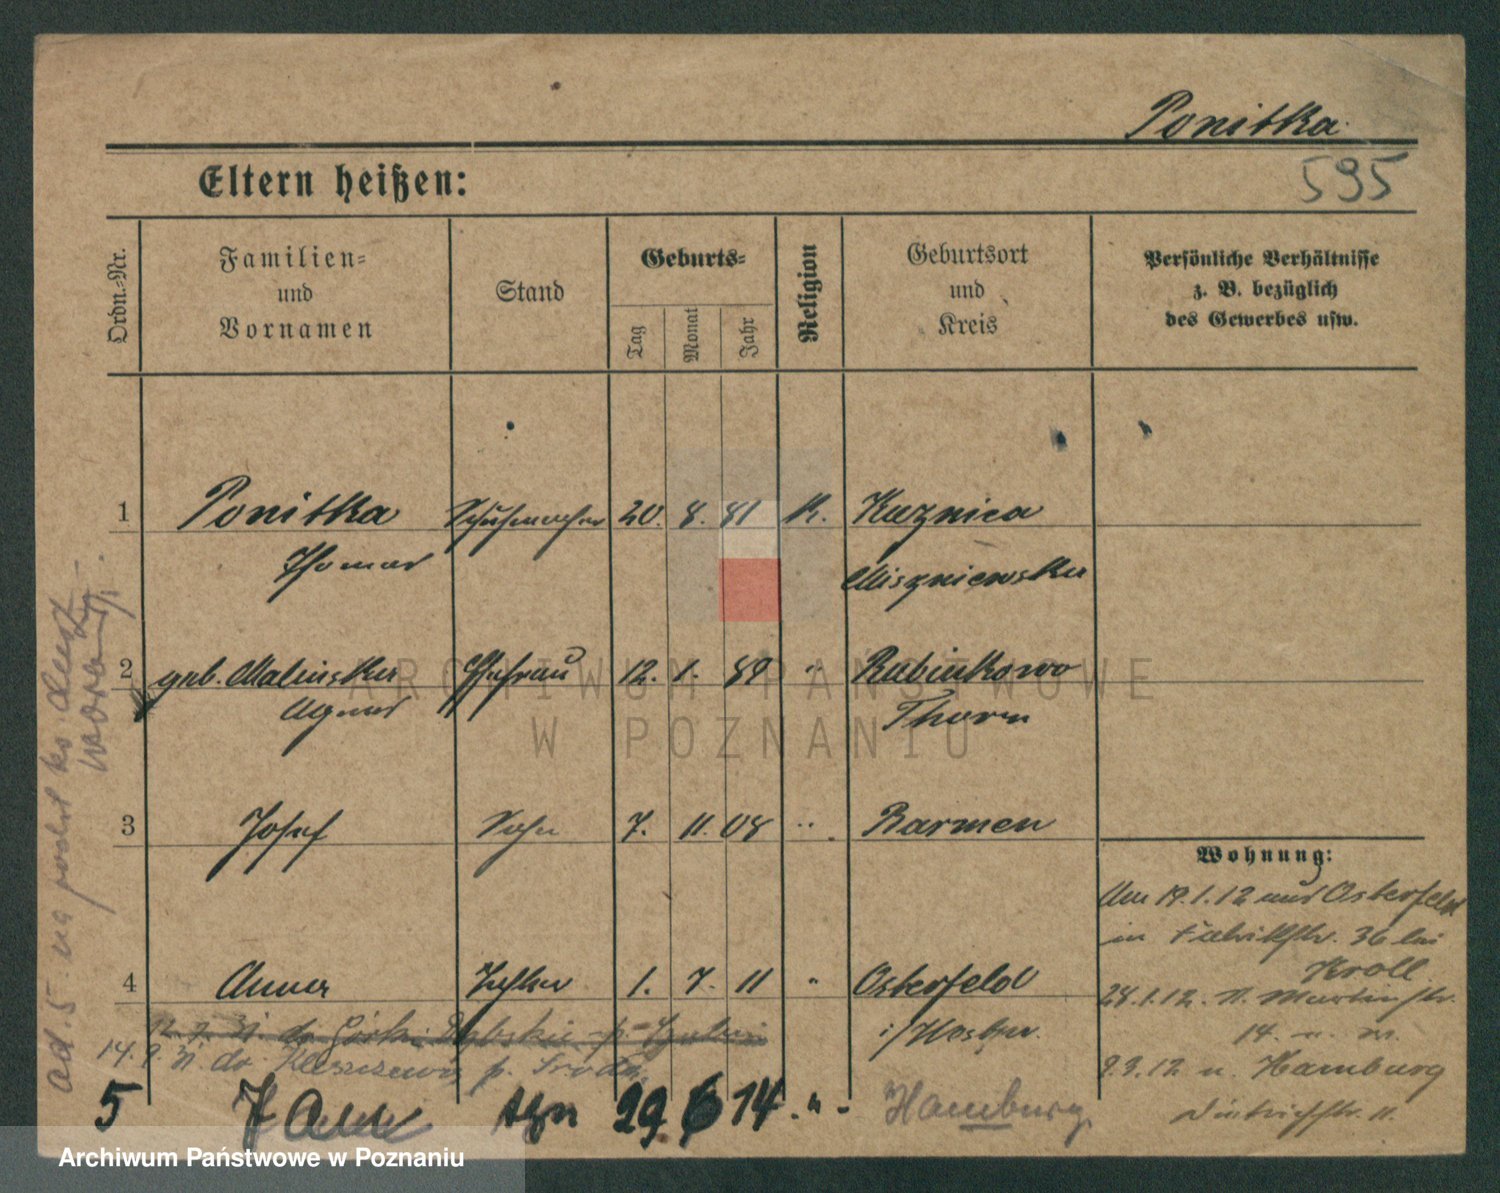 Ponitka
595
Eltern heißen:
Ordn.-Nr.
Familien-
und
Vornamen
Stand
Geburts-
Tag
Monat
Jahr
Religion
Geburtsort
und
Kreis
Persönliche Verhältnisse
z. B. bezüglich
des Gewerbes usw.
1 Ponitka Schuhmacher 20. 8. 81 K. Kuznica
Thomas Miszniewsku
2 geb. Malinska Ehefrau 12. 1. 89 " Rubinkowo
Agnes Thorn
3 Josef Sohn 7. 11. 08 " Barmen
Wohnung:
Am 19.1.12 aus Osterfeld
in Fabrikstr. 36 bei
Kroll
4 Anna Tochter 1. 7. 11 " Osterfeld
24.1.12. n. Martinstr.
i/Westf.
14. n. m.
12. 9. 31 do Górki p.
14. 9. 31 do Kleszczewa p. Środa
9.9.12 n. Hamburg
5 Sohn 29 6 14 " Hamburg
Dietrichstr. 11.
ad. 5. na
ARCHIWUM PAŃSTWOWE
W POZNANIU
Archiwum Państwowe w Poznaniu